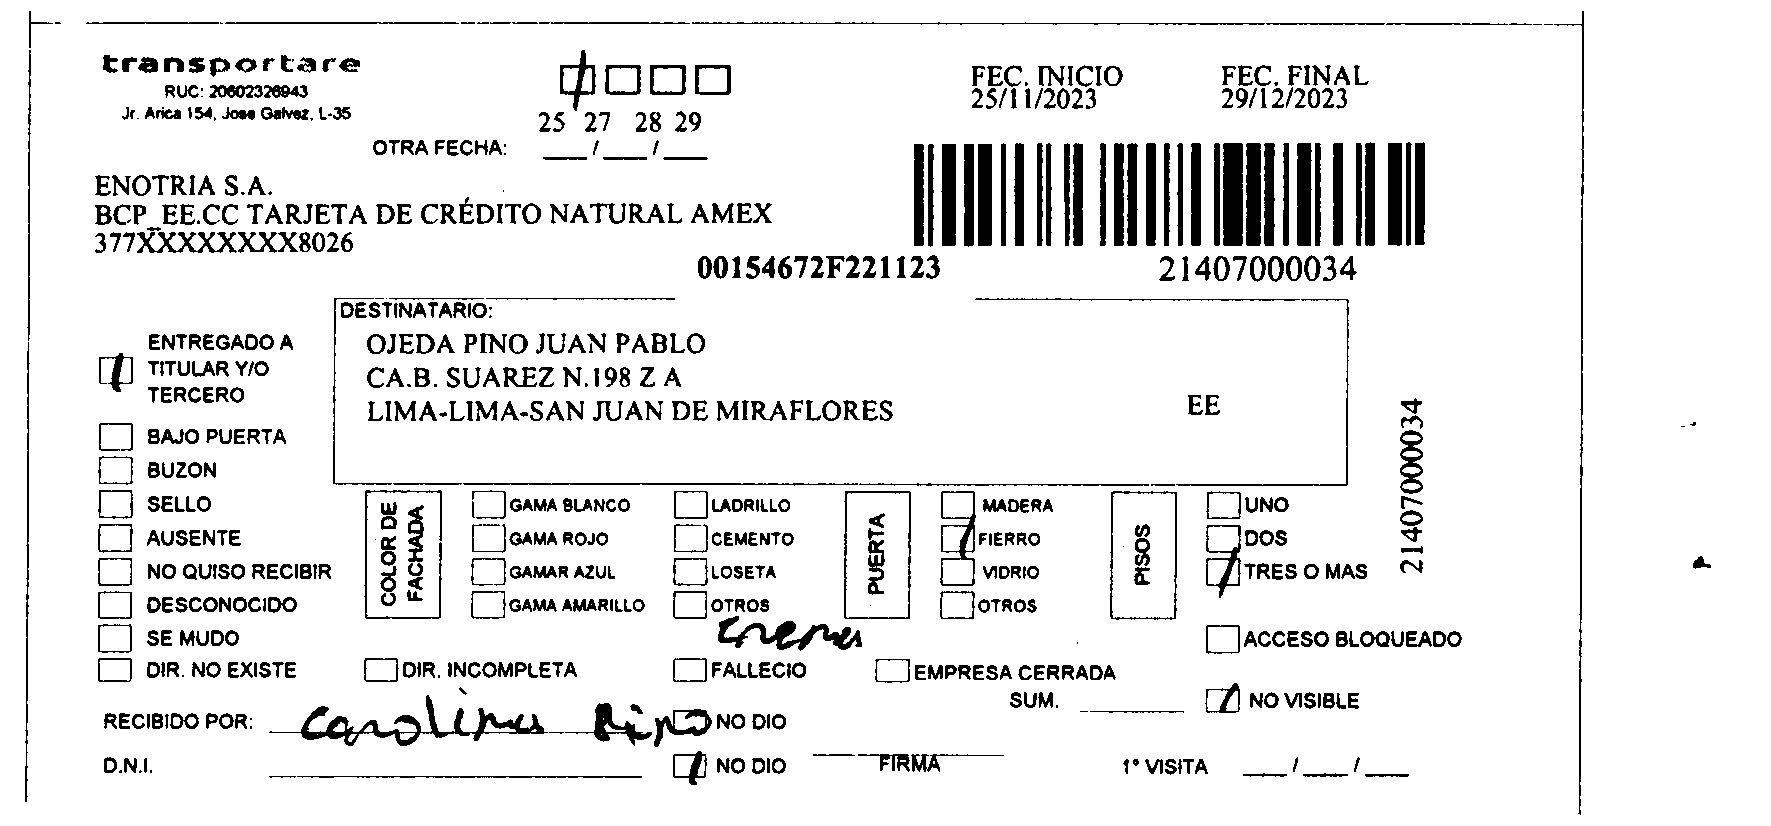 transportare
RUC: 20602326943
Jr. Arica 154, Jose Galvez, L-35
25 27 28 29
OTRA FECHA: ___/___/___
FEC. INICIO
25/11/2023
FEC. FINAL
29/12/2023
ENOTRIA S.A.
BCP_EE.CC TARJETA DE CRÉDITO NATURAL AMEX
377XXXXXXXXX8026
00154672F221123
21407000034
DESTINATARIO:
OJEDA PINO JUAN PABLO
CA.B. SUAREZ N.198 Z A
LIMA-LIMA-SAN JUAN DE MIRAFLORES
EE
21407000034
ENTREGADO A
TITULAR Y/O
TERCERO
BAJO PUERTA
BUZON
SELLO
AUSENTE
NO QUISO RECIBIR
DESCONOCIDO
SE MUDO
DIR. NO EXISTE
COLOR DE
FACHADA
GAMA BLANCO
GAMA ROJO
GAMAR AZUL
GAMA AMARILLO
LADRILLO
CEMENTO
LOSETA
OTROS
Crema
PUERTA
MADERA
FIERRO
VIDRIO
OTROS
PISOS
UNO
DOS
TRES O MAS
ACCESO BLOQUEADO
DIR. INCOMPLETA
FALLECIO
EMPRESA CERRADA
SUM. ______
NO VISIBLE
RECIBIDO POR: Carolina Pino
NO DIO
D.N.I.
NO DIO
FIRMA
1° VISITA ___/___/___